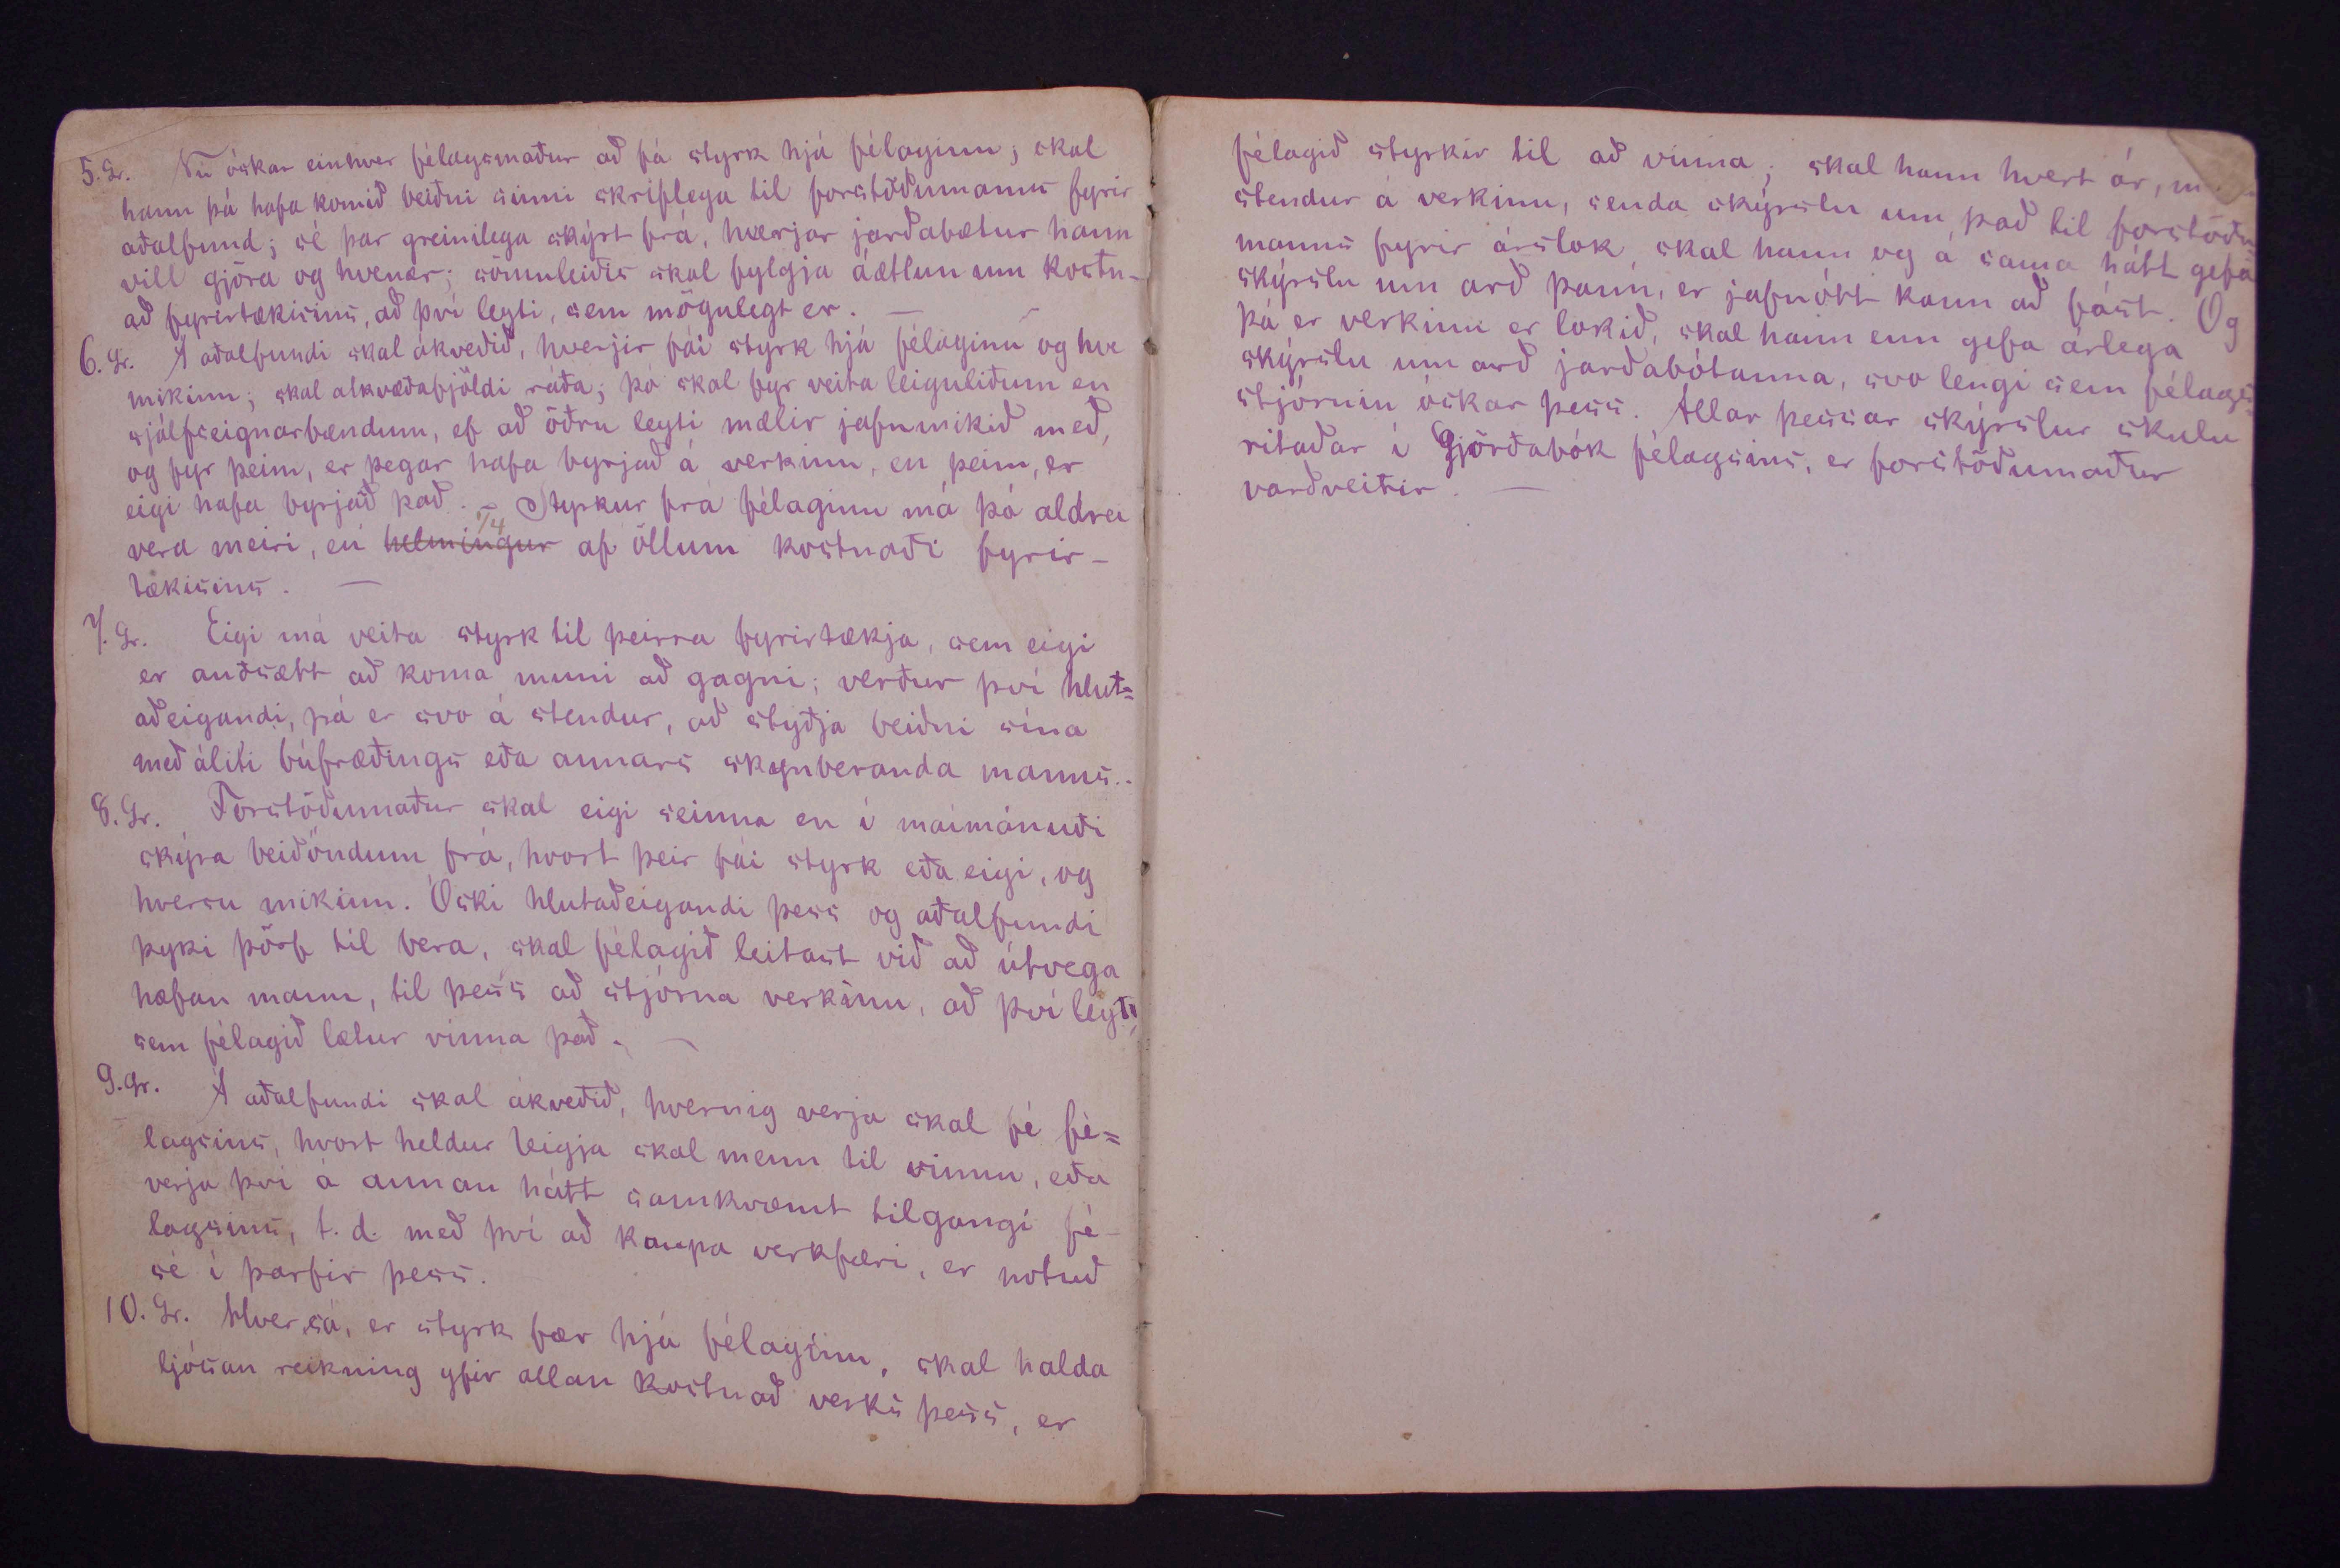 5. Gr. Nú óskar einhver félagsmaður að fá styrk hjá félaginu; skal
hann þá hafa komið beiðni sinni skriflega til forstöðumanns fyrir
aðalfund; sé þar greinilega skýrt frá, hverjar jarðabætur hann
vill gjöra og hvenær; sömuleiðis skal fylgja áætlun um kostn-
að fyrirtækisins, að því leyti, sem mögulegt er. —
6. Gr. Á aðalfundi skal ákveðið, hverjir fái styrk hjá félaginu og hve
mikinn; skal atkvæðafjöldi ráða; þó skal fyr veita leiguliðum en
sjálfseignarbændum, ef að öðru leyti mælir jafnmikið með,
og fyr þeim, er þegar hafa byrjað á verkinu, en þeim, er
eigi hafa byrjað það. – Styrkur frá félaginu má þó aldrei
vera meiri, en helmingur 1/4 af öllum kostnaði fyrir-
tækisins. —
7. Gr. Eigi má veita styrk til þeirra fyrirtækja, sem eigi
er auðsætt að koma muni að gagni; verður því hlut=
aðeigandi, þá er svo á stendur, að styðja beiðni sína
með áliti búfræðings eða annars skynberanda manns..
8. Gr. Forstöðumaður skal eigi seinna en í maímánuði
skýra beiðöndum frá, hvort þeir fái styrk eða eigi, og
hversu mikinn. Óski hlutaðeigandi þess og aðalfundi
þyki þörf til bera, skal félagið leitast við að útvega
hæfan mann, til þess að stjórna verkinu, að því leyti,
sem félagið lætur vinna það. —
9. Gr. Á aðalfundi skal ákveðið, hvernig verja skal fé fé=
lagsins, hvort heldur leigja skal menn til vinnu, eða
verja því á annan hátt samkvæmt tilgangi fé-
lagsins, t. d. með því að kaupa verkfæri, er notuð
sé í þarfir þess.
10. Gr. Hver sá, er styrk fær hjá félaginu, skal halda
ljósan reikning yfir allan kostnað verks þess, er
félagið styrkir til að vinna; skal hann hvert ár,
stendur á verkinu, senda skýrslu um það til forstöðu
manns fyrir árslok, skal hann og á sama hátt gefa
skýrslu um arð þann, er jafnótt kann að fást. Og
þá er verkinu er lokið, skal hann enn gefa árlega
skýrslu um arð jarðabótanna, svo lengi sem félags=
stjórnin óskar þess. Allar þessar skýrslur skulu
ritaðar í Gjörðabók félagsins, er forstöðumaður
varðveitir. —